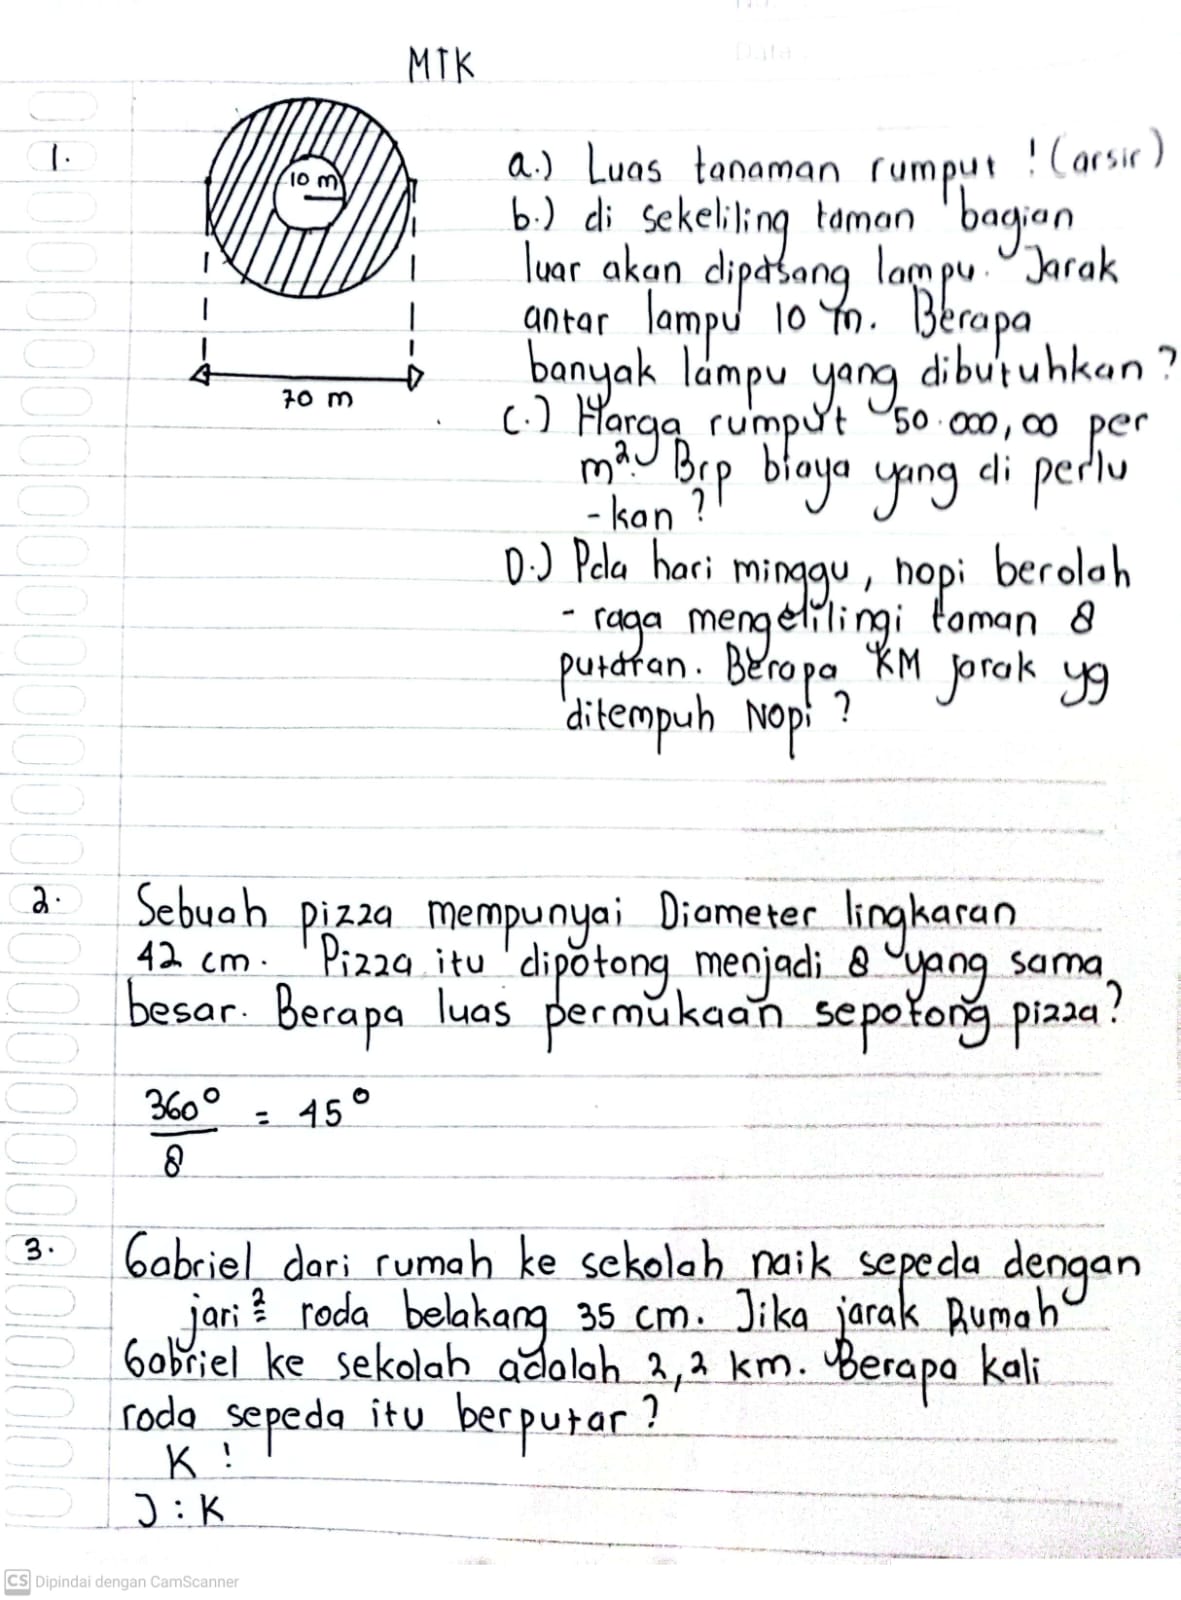 MTK
1.
10 m
70 m
a.) Luas tanaman rumput ! (arsir)
b.) di sekeliling taman bagian
luar akan dipasang lampu. Jarak
antar lampu 10 m. Berapa
banyak lampu yang dibutuhkan ?
C.) Harga rumput 50.000,00 per
m². Brp biaya yang di perlu
- kan ?
D.) Pda hari minggu, nopi berolah
- raga mengelilingi taman 8
putaran. Berapa KM jarak yg
ditempuh Nopi ?
2. Sebuah pizza mempunyai Diameter lingkaran
42 cm. Pizza itu dipotong menjadi 8 yang sama
besar. Berapa luas permukaan sepotong pizza?
360° = 45°
8
3. Gabriel dari rumah ke sekolah naik sepeda dengan
jari² roda belakang 35 cm. Jika jarak Rumah
Gabriel ke sekolah adalah 2,2 km. Berapa kali
roda sepeda itu berputar ?
K !
J : K
CS Dipindai dengan CamScanner